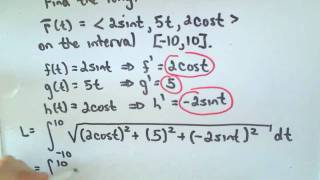 Find the leng
r̄(t) = < 2sint, 5t, 2cost >
on the interval [-10,10].
f(t) = 2sint ⇒ f' = 2cost
g(t) = 5t ⇒ g' = 5
h(t) = 2cost ⇒ h' = -2sint
L = ∫_{-10}^{10} √((2cost)² + (5)² + (-2sint)²) dt
= ∫^{10}